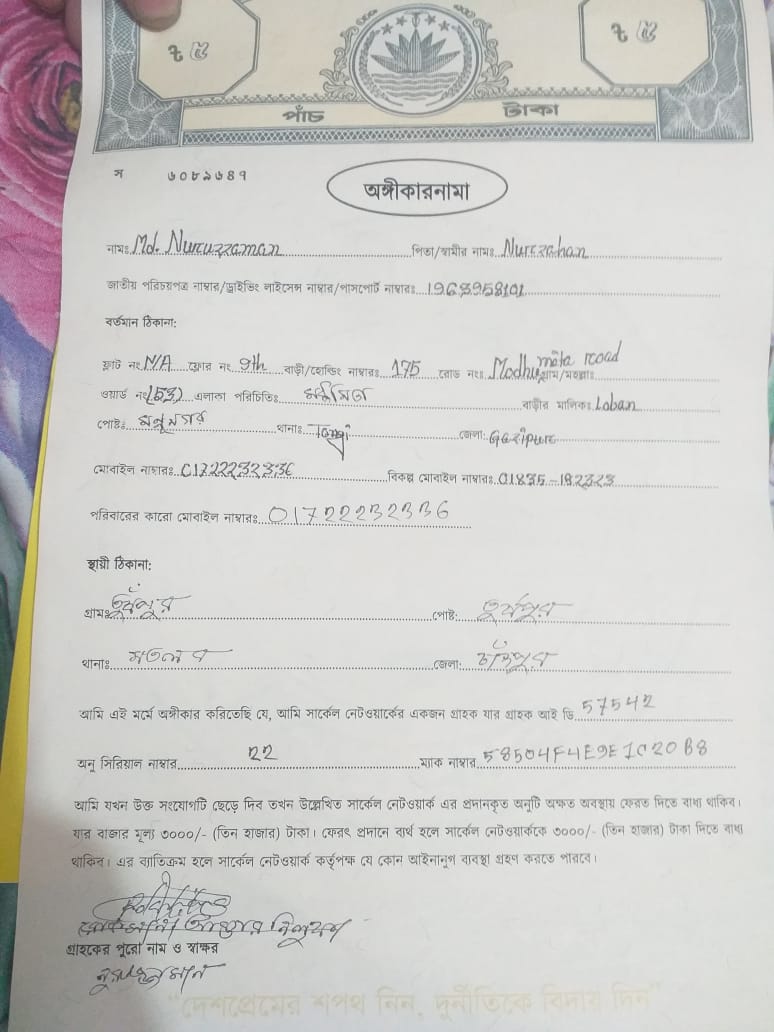 ৳ ৫ ৳ ৫
পাঁচ টাকা
স ৬০৮৯৬৪৭
অঙ্গীকারনামা
নামঃ Md. Nuruzzaman পিতা/স্বামীর নামঃ Nurezahan
জাতীয় পরিচয়পত্র নাম্বার/ড্রাইভিং লাইসেন্স নাম্বার/পাসপোর্ট নাম্বারঃ 1963958101
বর্তমান ঠিকানা:
ফ্লাট নং N/A ফ্লোর নং 9th বাড়ী/হোল্ডিং নাম্বারঃ 175 রোড নংঃ Modhumita road গ্রাম/মহল্লাঃ
ওয়ার্ড নং (53) এলাকা পরিচিতিঃ বাড়ীর মালিকঃ Loban
পোষ্টঃ মন্নুনগর থানাঃ Tongi জেলা: Gazipure
মোবাইল নাম্বারঃ 01722232336 বিকল্প মোবাইল নাম্বারঃ 01835-182323
পরিবারের কারো মোবাইল নাম্বারঃ 01722232336
স্থায়ী ঠিকানা:
গ্রামঃ পোষ্ট:
থানাঃ মতলব জেলা: চাঁদপুর
আমি এই মর্মে অঙ্গীকার করিতেছি যে, আমি সার্কেল নেটওয়ার্কের একজন গ্রাহক যার গ্রাহক আই ডি 57542
অনু সিরিয়াল নাম্বার 22 ম্যাক নাম্বার 58504F4E9E1C20B8
আমি যখন উক্ত সংযোগটি ছেড়ে দিব তখন উল্লেখিত সার্কেল নেটওয়ার্ক এর প্রদানকৃত অনুটি অক্ষত অবস্থায় ফেরত দিতে বাধ্য থাকিব।
যার বাজার মূল্য ৩০০০/- (তিন হাজার) টাকা। ফেরৎ প্রদানে ব্যর্থ হলে সার্কেল নেটওয়ার্ককে ৩০০০/- (তিন হাজার) টাকা দিতে বাধ্য
থাকিব। এর ব্যতিক্রম হলে সার্কেল নেটওয়ার্ক কর্তৃপক্ষ যে কোন আইনানুগ ব্যবস্থা গ্রহণ করতে পারবে।
গ্রাহকের পুরো নাম ও স্বাক্ষর
নুরুজ্জামান
“দেশপ্রেমের শপথ নিন, দুর্নীতিকে বিদায় দিন”